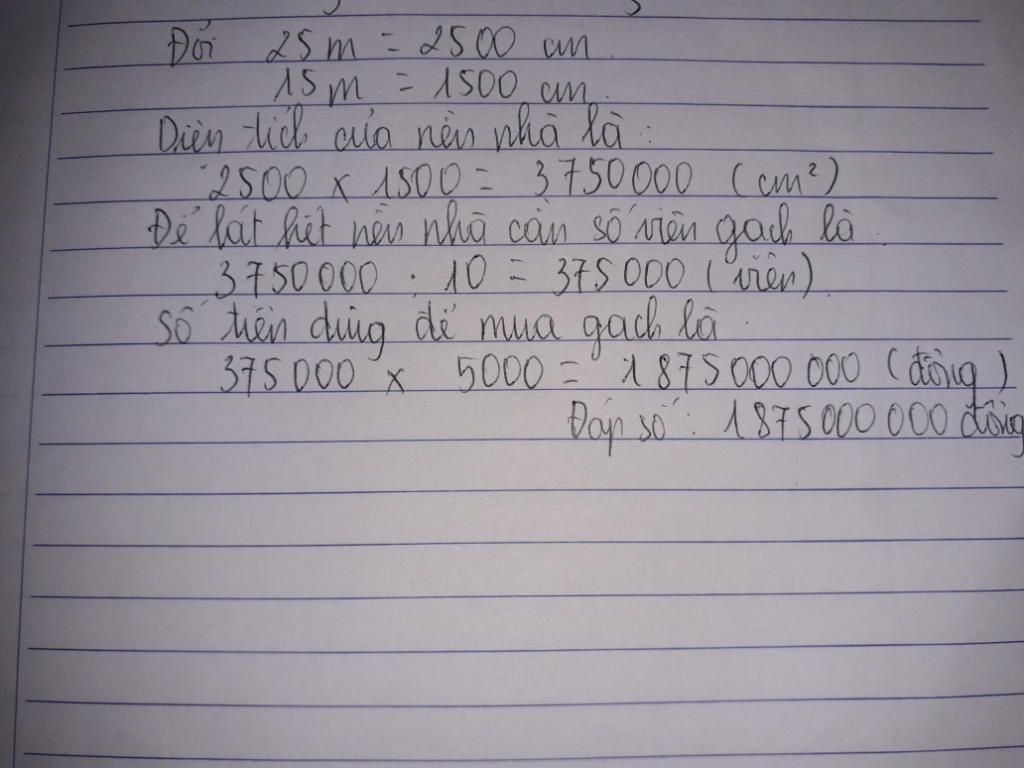 Đổi 25m = 2500 cm.
15m = 1500 cm.
Diện tích của nền nhà là:
2500 x 1500 = 3750000 (cm²)
Để lát hết nền nhà cần số viên gạch là:
3750000 : 10 = 375000 (viên)
Số tiền dùng để mua gạch là:
375000 x 5000 = 1875000000 (đồng)
Đáp số: 1875000000 đồng